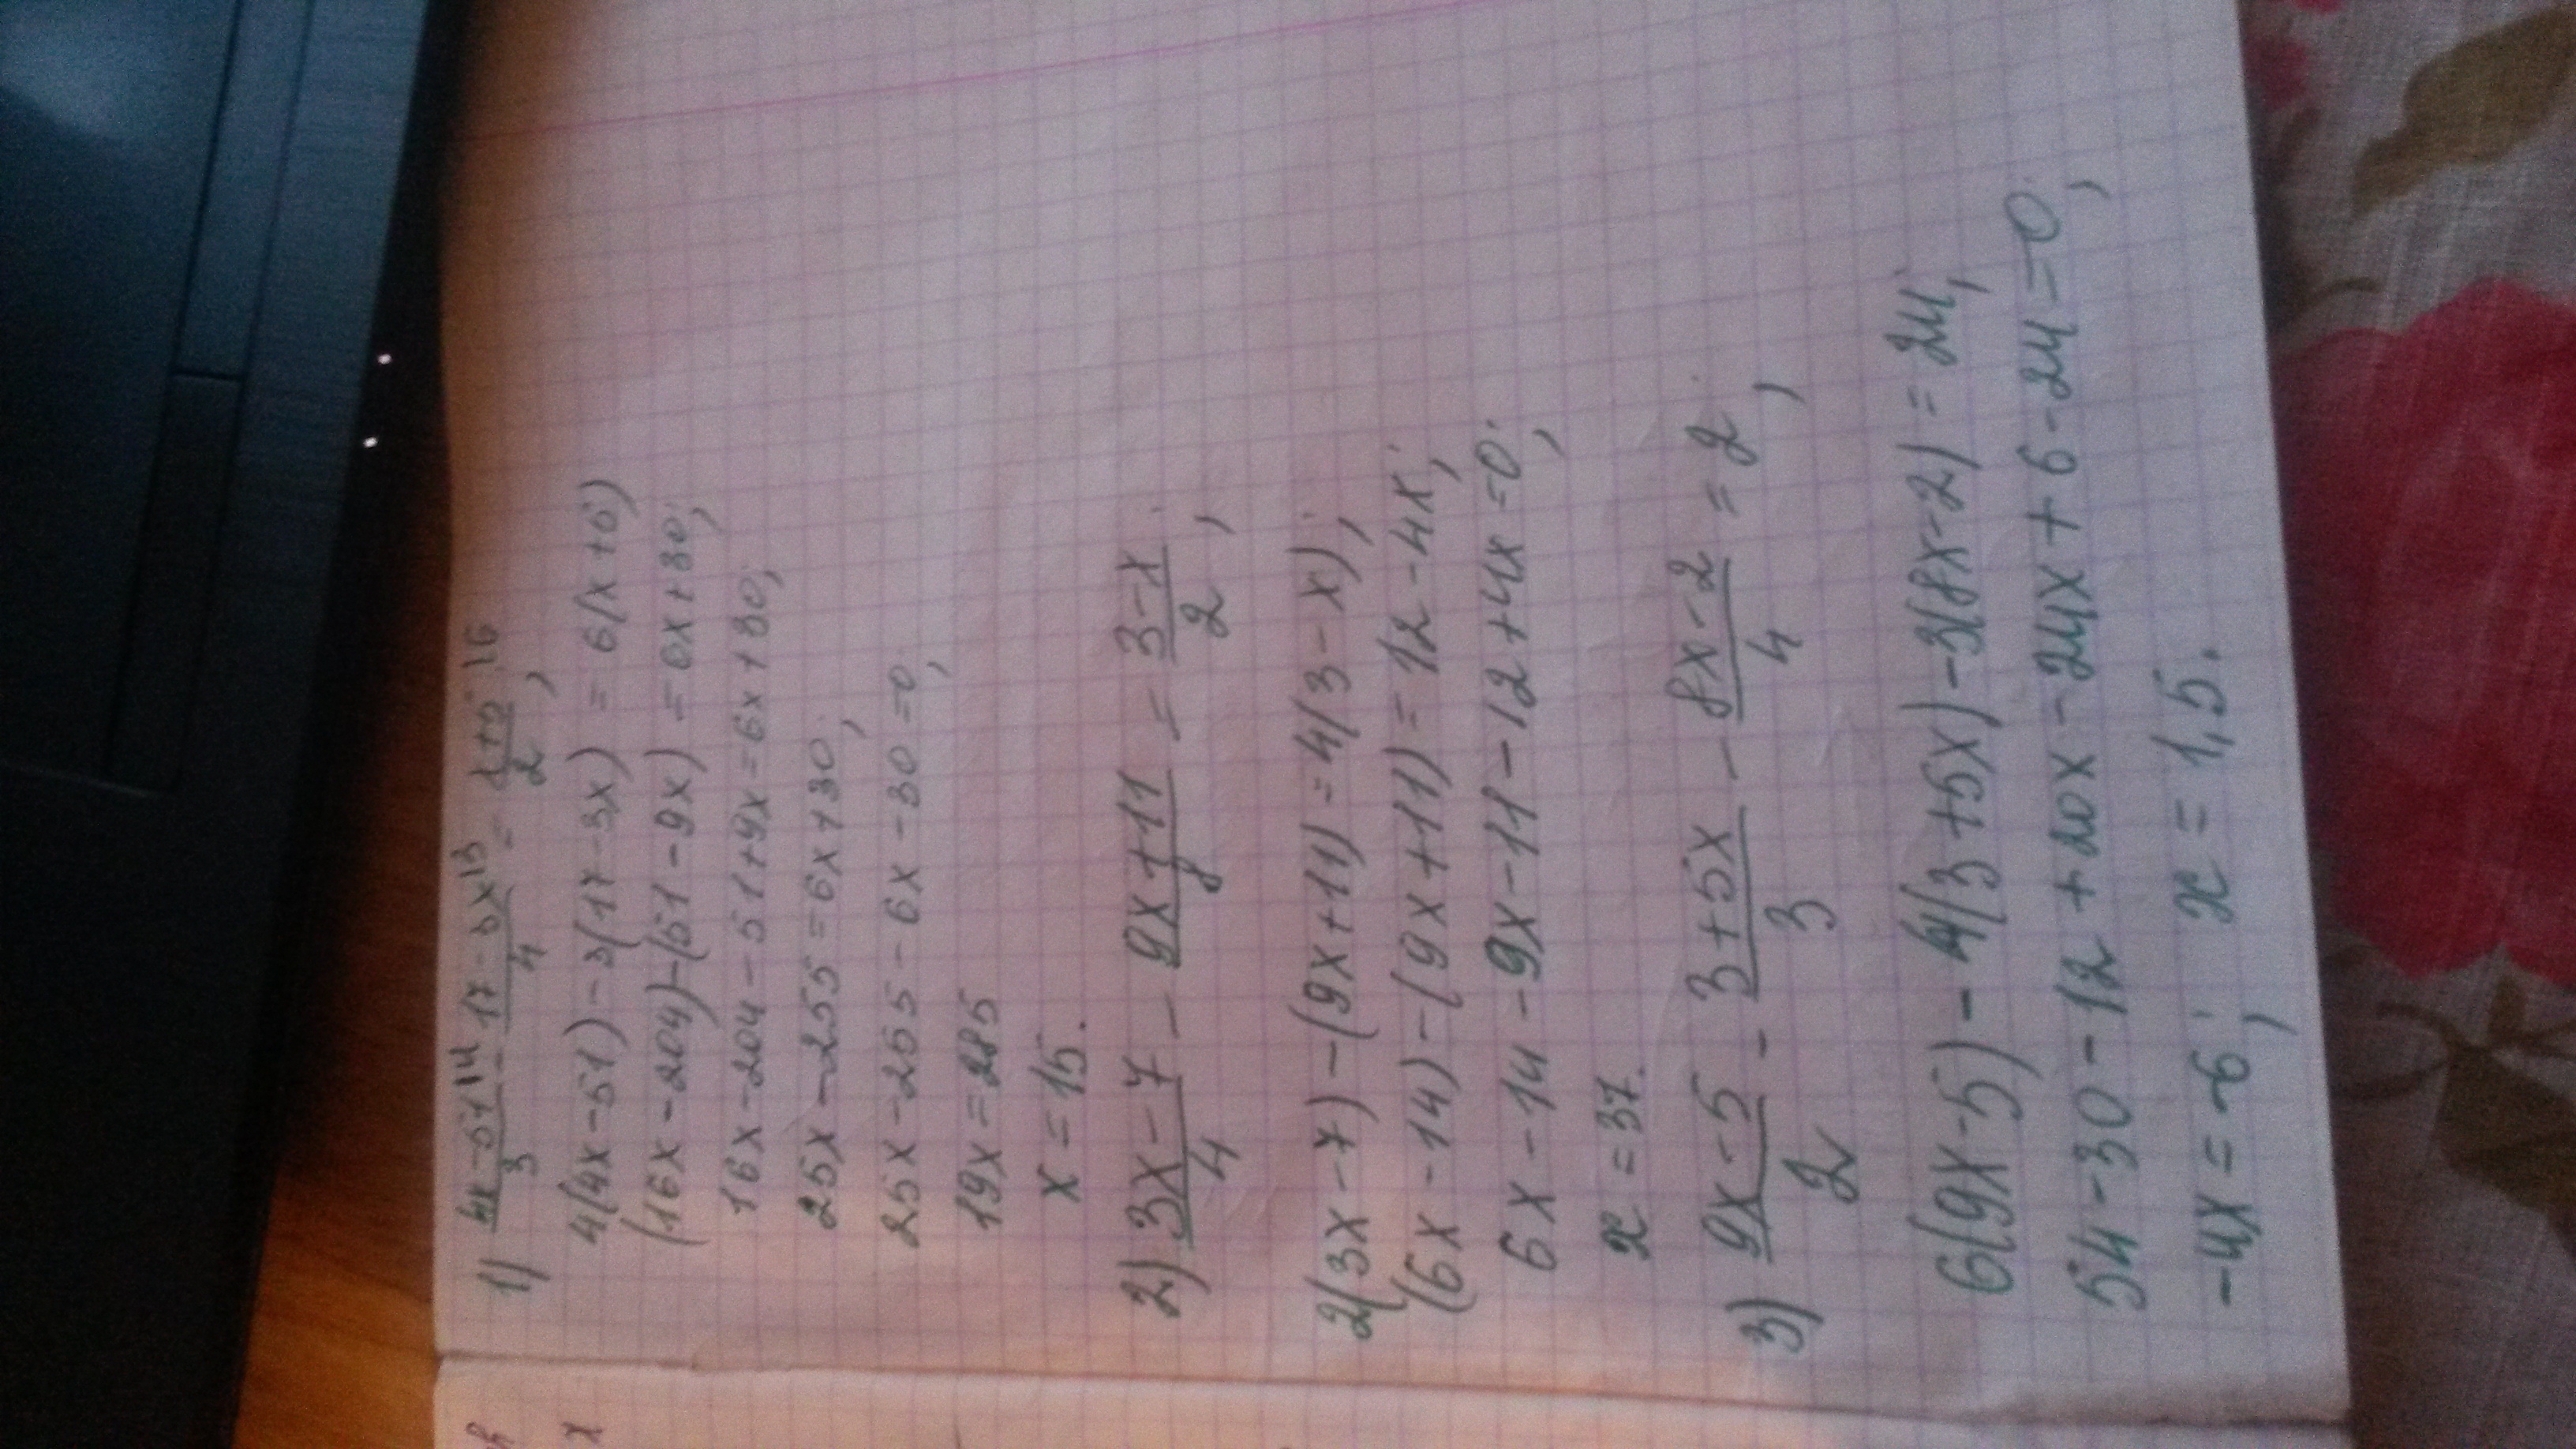 1) (4x-51)/3 |4 - (17-3x)/4 |3 = (x+5)/2 |6;
4(4x-51)-3(17-3x) = 6(x+5)
(16x-204)-(51-9x) = 6x+30;
16x-204-51+9x=6x+30;
25x-255=6x+30;
25x-255-6x-30=0;
19x=285
x=15.
2) (3x-7)/4 - (9x+11)/8 = (3-x)/2;
2(3x-7)-(9x+11)=4(3-x);
(6x-14)-(9x+11)=12-4x;
6x-14-9x-11-12+4x=0;
x=37.
3) (9x-5)/2 - (3+5x)/3 - (8x-2)/4 = 2;
6(9x-5)-4(3+5x)-3(8x-2)=24;
54-30-12+20x-24x+6-24=0;
-4x=-6; x=1,5.
х